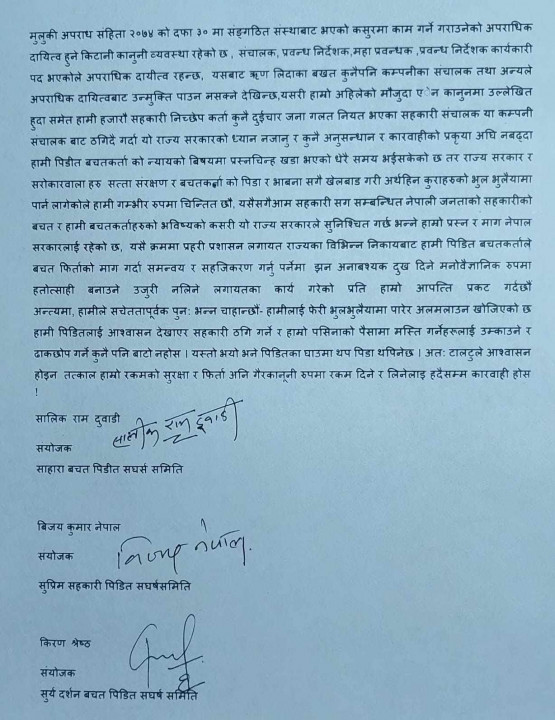 मुलुकी अपराध संहिता २०७४ को दफा ३० मा सङ्गठित संस्थाबाट भएको कसुरमा काम गर्ने गराउनेको अपराधिक
दायित्व हुने किटानी कानुनी व्यवस्था रहेको छ , संचालक, प्रवन्ध निर्देशक,महा प्रवन्धक ,प्रवन्ध निर्देशक कार्यकारी
पद भएकोले अपराधिक दायीत्व रहन्छ, यसबाट ऋण लिदाका बखत कुनैपनि कम्पनीका संचालक तथा अन्यले
अपराधिक दायित्वबाट उन्मुक्ति पाउन नसक्ने देखिन्छ,यसरी हामो अहिलेको मौजुदा एेन कानुनमा उल्लेखित
हुदा समेत हामी हजारौ सहकारी निच्छेप कर्ता कुनै दुईचार जना गलत नियत भएका सहकारी संचालक या कम्पनी
संचालक बाट ठगिदै गर्दा यो राज्य सरकारको ध्यान नजानु र कुनै अनुसन्धान र कारवाहीको प्रकृया अघि नबढ्दा
हामी पिडीत बचतकर्ता को न्यायको बिषयमा प्रस्नचिन्ह खडा भएको धेरै समय भईसकेको छ तर राज्य सरकार र
सरोकारवाला हरु सत्ता संरक्षण र बचतकर्ता को पिडा र भाबना सगै खेलबाड गरी अर्थहिन कुराहरुको भुल भुलैयामा
पार्न लागेकोले हामी गम्भीर रुपमा चिन्तित छौ, यसैसगैआम सहकारी सग सम्बन्धित नेपाली जनताको सहकारीको
बचत र हामी बचतकर्ताहरुको भविष्यको कसरी यो राज्य सरकारले सुनिश्चित गर्छ भन्ने हामो प्रस्न र माग नेपाल
सरकारलाई रहेको छ, यसै क्रममा प्रहरी प्रशासन लगायत राज्यका विभिन्न निकायबाट हामी पिडित बचतकर्ताले
बचत फिर्ताको माग गर्दा समन्वय र सहजिकरण गर्नु पर्नेमा झन अनाबश्यक दुख दिने मनोवैज्ञानिक रुपमा
हतोत्साही बनाउने उजुरी नलिने लगायतका कार्य गरेको प्रति हामो आपत्ति प्रकट गर्दछौं
अन्त्यमा, हामीले सचेततापूर्वक पुन: भन्न चाहान्छौं- हामीलाई फेरी भुलभुलैयामा पारेर अलमलाउन खोजिएको छ
हामी पिडितलाई आश्वासन देखाएर सहकारी ठगि गर्ने र हामो पसिनाको पैसामा मस्ति गर्नेहरुलाई उम्काउने र
ढाकछोप गर्ने कुनै पनि बाटो नहोस । यस्तो भयो भने पिडितका घाउमा थप पिडा थपिनेछ । अत: टालटुले आश्वासन
होइन तत्काल हामो रकमको सुरक्षा र फिर्ता अनि गैरकानूनी रुपमा रकम दिने र लिनेलाइ हदैसम्म कारवाही होस
!
सालिक राम दुवाडी
सालीक राम दुवाडी
संयोजक
साहारा बचत पिडीत सघर्स समिति
बिजय कुमार नेपाल
विजय नेपाल.
सयोजक
सुप्रिम सहकारी पिडित सघर्षसमिति
किरण श्रेष्ठ
संयोजक
सुर्य दर्शन बचत पिडित सघर्ष समिति